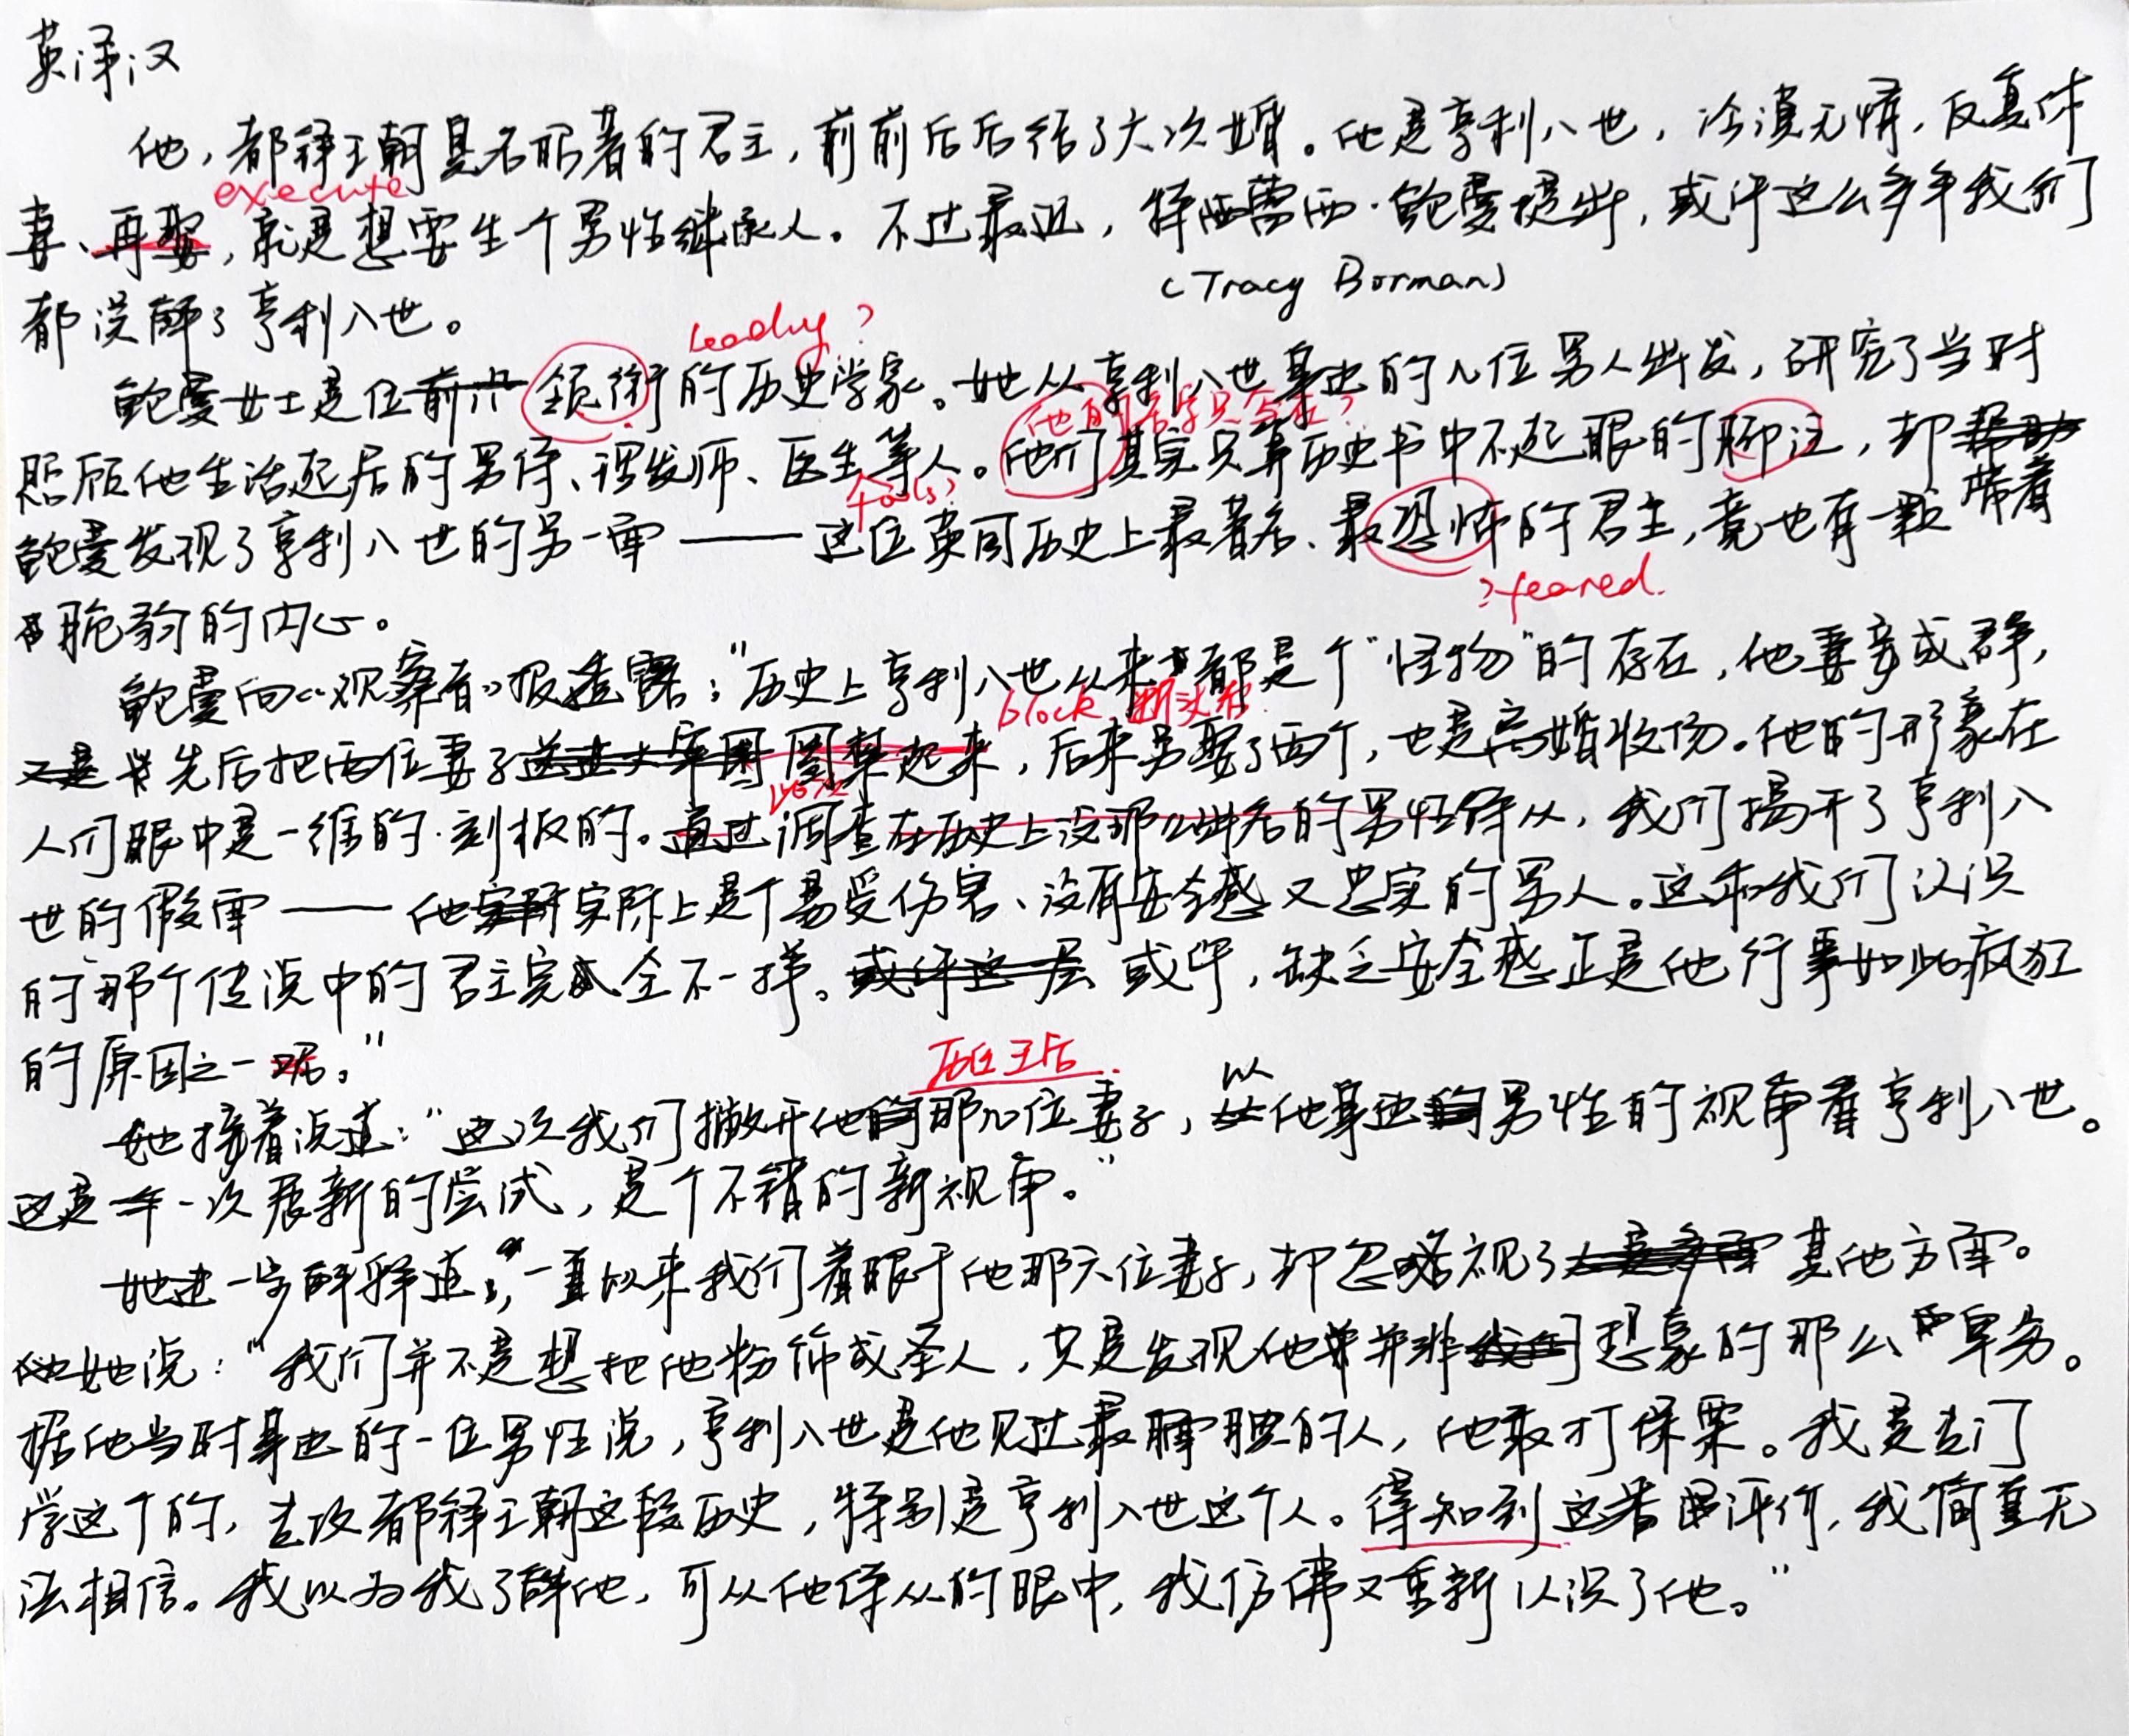 英译汉
他，都铎王朝臭名昭著的君主，前前后后结了六次婚。他是亨利八世，冷漠无情，反复休
execute
妻、再娶，就是想要生个男性继承人。不过最近，特蕾西·鲍曼提出，或许这么多年我们
(Tracy Borman)
都误解了亨利八世。
leading?
鲍曼女士是位领衔的历史学家。她从亨利八世身边的几位男人出发，研究了当时
他们的名字只写在?
照顾他生活起居的男侍、理发师、医生等人。他们其实只算历史书中不起眼的脚注，却带着
fools?
鲍曼发现了亨利八世的另一面——这位英国历史上最著名、最恐怖的君主，竟也有一颗
?feared.
脆弱的内心。
鲍曼向《观察者》报透露："历史上亨利八世从来都是个"怪物"的存在，他妻妾成群，
block 断头台
先后把两位妻子囚禁起来，后来另娶了两个，也是离婚收场。他的形象在
人们眼中是一维的·刻板的。通过调查在历史上没那么出名的男性侍从，我们揭开了亨利八
世的假面——他实际上是个易受伤害、没有安全感又忠实的男人。这和我们认识
的那个传说中的君主完全不一样。或许，缺乏安全感正是他行事如此疯狂
的原因之一呢。"
历任王后
她接着说道："这次我们撇开他那几位妻子，以他身边男性的视角看亨利八世。
这是一次崭新的尝试，是个不错的新视角。"
她进一步解释道，"一直以来我们着眼于他那六位妻子，却忽视了其他方面。
她说："我们并不是想把他粉饰成圣人，只是发现他并非想象的那么卑劣。
据他当时身边的一位男性说，亨利八世是他见过最腼腆的人，他敢打保票。我是专门
学这个的，专攻都铎王朝这段历史，特别是亨利八世这个人。得知到这番评价，我简直无
法相信。我以为我了解他，可从他侍从的眼中，我仿佛又重新认识了他。"